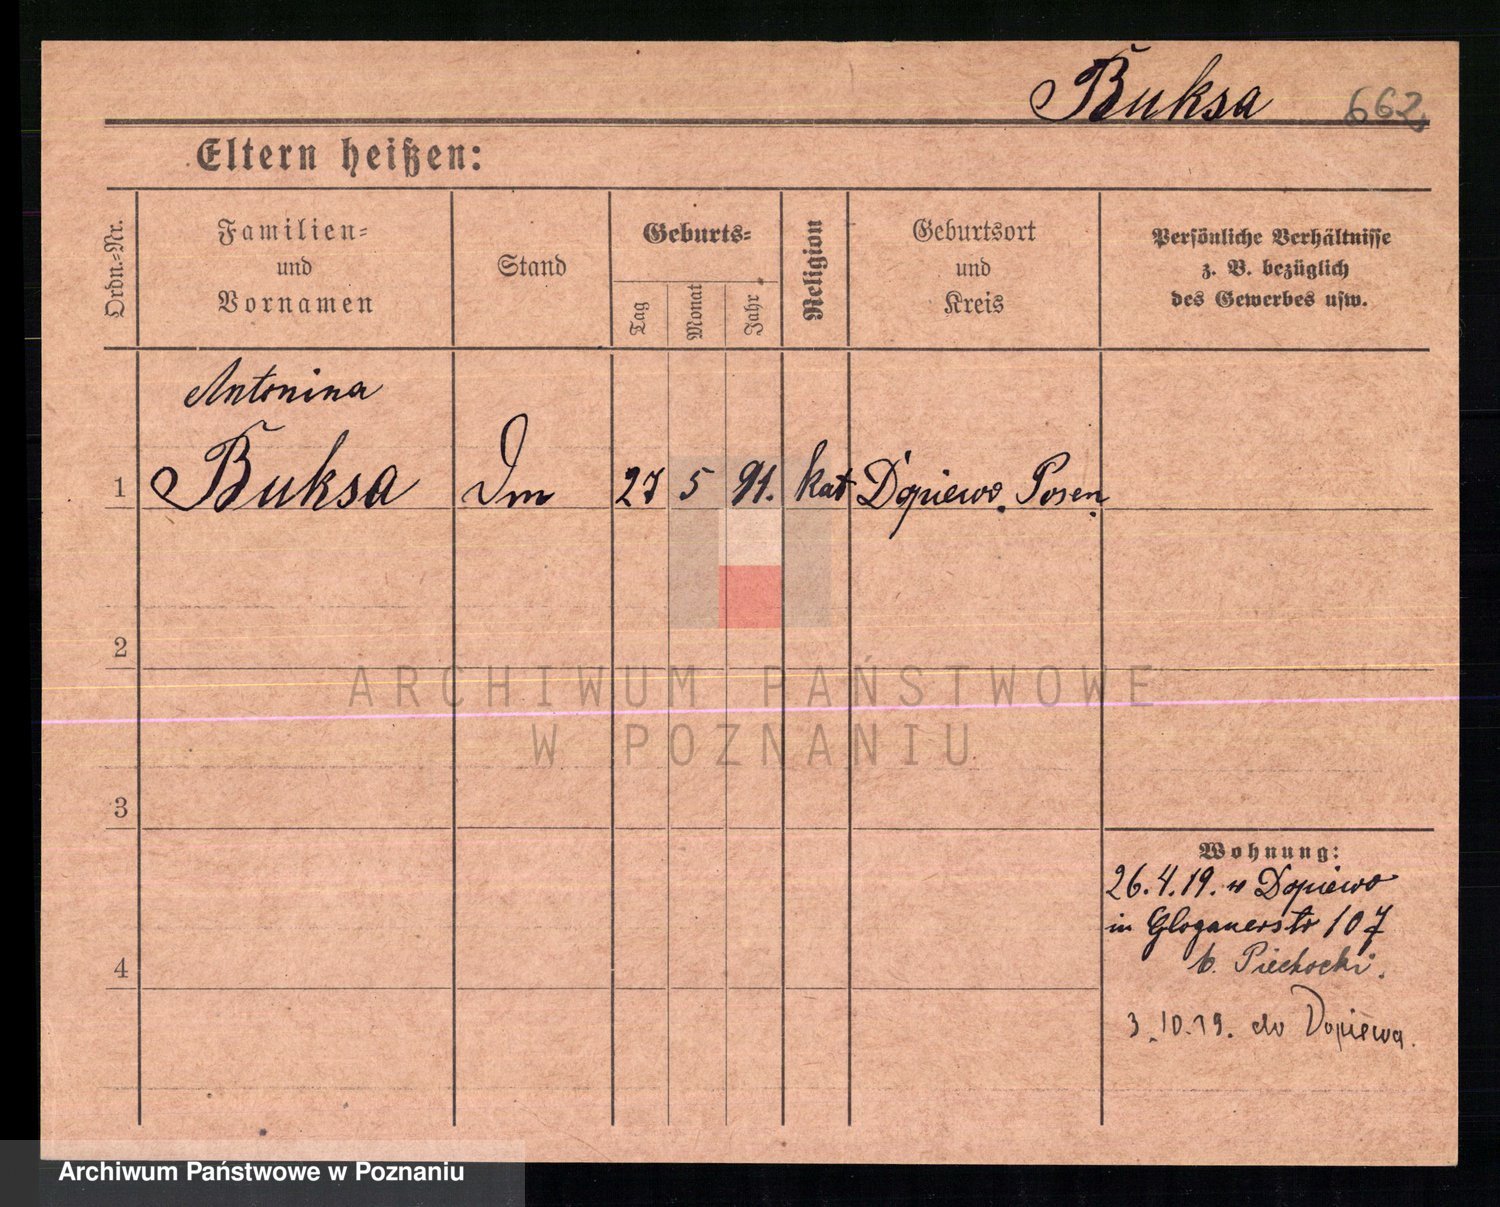 Buksa 662
Eltern heißen:
Ordn.-Nr.
Familien-
und
Vornamen
Stand
Geburts-
Tag
Monat
Jahr
Religion
Geburtsort
und
Kreis
Persönliche Verhältnisse
z. B. bezüglich
des Gewerbes usw.
Antonina
1 Buksa Dm 27 5 91. kat Dopiewo. Posen
2
3
4
Wohnung:
26.4.19. v Dopiewo
in Glogauerstr 107
b. Piechocki.
3.10.19. do Dopiewa.
ARCHIWUM PAŃSTWOWE
W POZNANIU
Archiwum Państwowe w Poznaniu